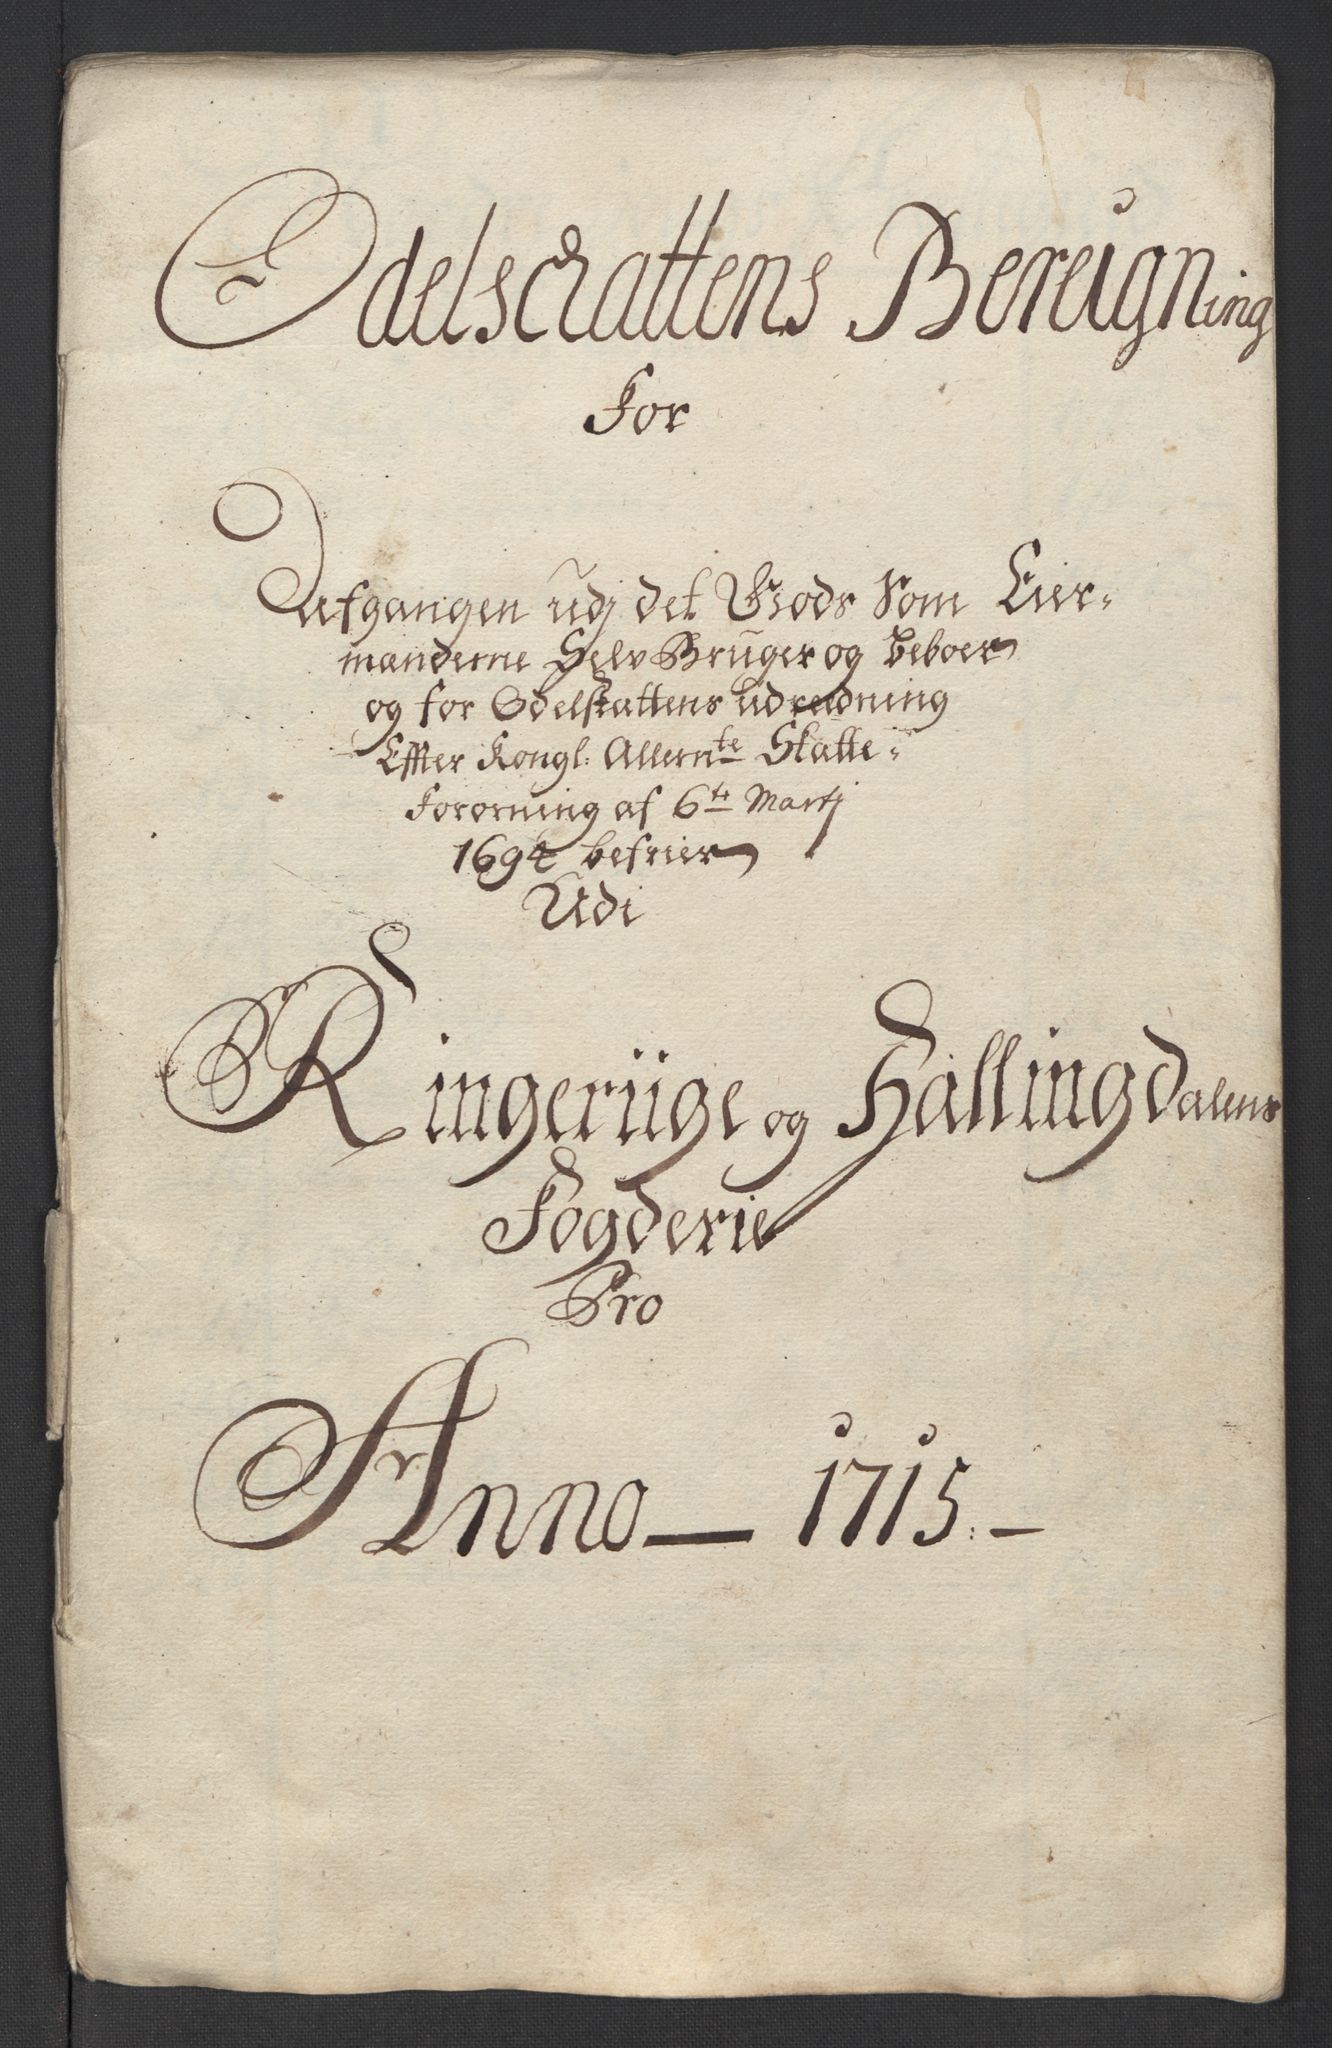 Odelschattens Bereigning
For
Aufgangen udj det Gods Som Eier-
manderne Selv Bruger og beboer
og for Odelskattens udredning
Effter Kongl: Allernte Skatte-
Fororning af 6te Martj
1694 befrier
Udi
Ringeriige og Hallingdalens
Fogderie
Pro
Anno — 1715. —